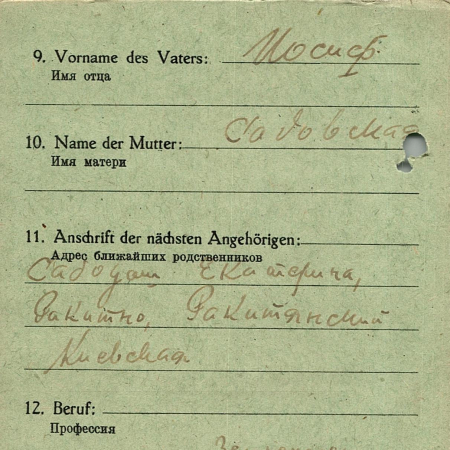 9. Vorname des Vaters: Иосиф
Имя отца
Садовская
10. Name der Mutter:
Имя матери
11. Anschrift der nächsten Angehörigen:
Адрес ближайших родственников
Екатерина,
Ракитно, Ракитянский
Киевская
12. Beruf:
Профессия